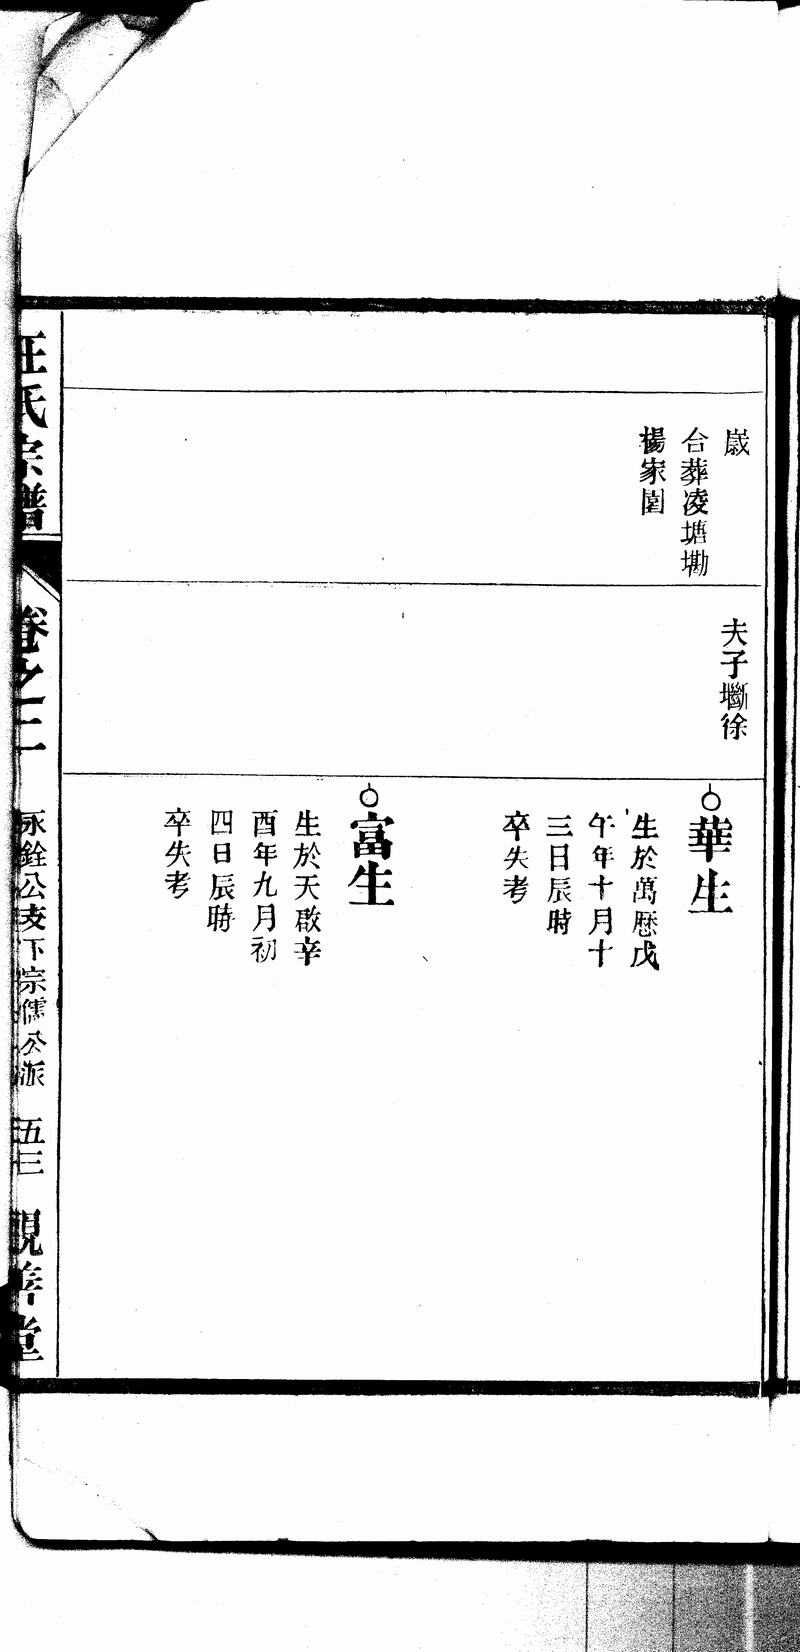 歲
合葬凌塘墈
楊家園
夫子壪徐
華生
生於萬厯戊
午年十月十
三日辰時
卒失考
富生
生於天啟辛
酉年九月初
四日辰時
卒失考
汪氏宗譜
卷之二
永銓公支下宗儒公派
五三
觀善堂